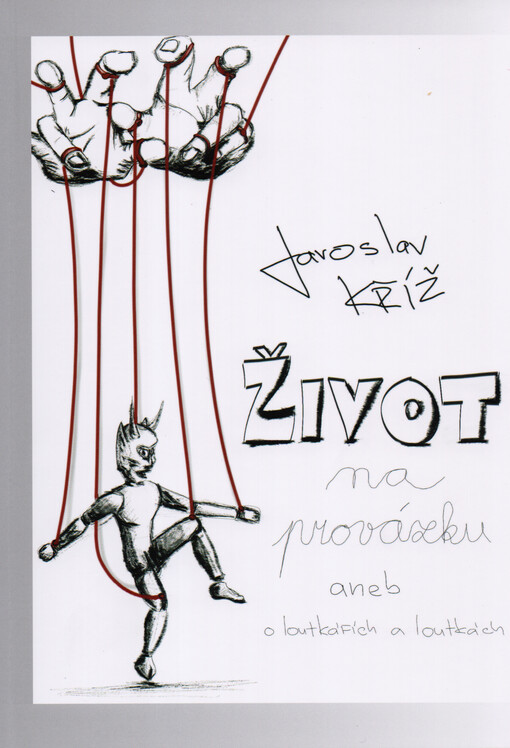 Jaroslav
KŘÍŽ
ŽIVOT
na
provázku
aneb
o loutkářích a loutkách